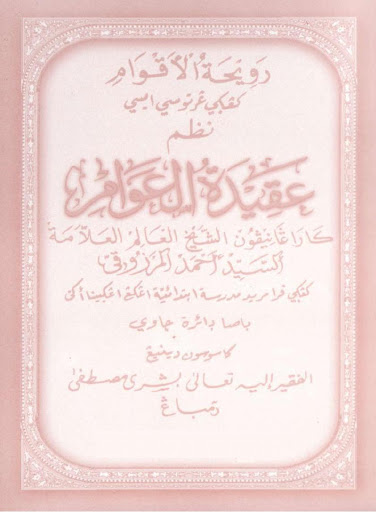 رويحة الأقوام
كڠݢي ڠرتوسي ايسي
نظم
عقيدة العوام
كاراڠانيڤون الشيخ العالم العلامة
السيد أحمد المرزوقي
كڠݢي ڤرا مريد مدرسة ابتدائية
باصا دائرة جاوي
كاسوسون دينيڠ
الفقير إليه تعالى بشرى مصطفى
رمباڠ